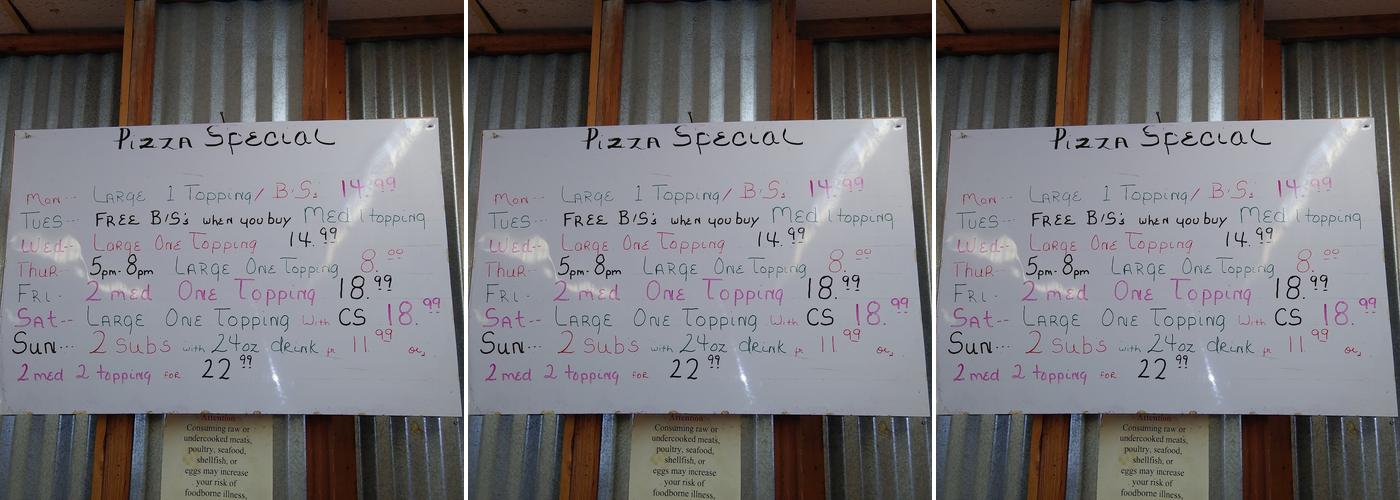 Pizza Special
Mon-- LARGE 1 Topping / B'S's 14.99
TUES--- FREE B'S's when you buy Med 1 topping
Wed-- Large One Topping 14.99
Thur-- 5pm-8pm LARGE One Topping 8.00
FRI-- 2 med One Topping 18.99
Sat-- LARGE One Topping With CS 18.99
Sun--- 2 Subs with 24oz drink for 11.99 or,
2 med 2 topping FOR 22.99
Attention
Consuming raw or
undercooked meats,
poultry, seafood,
shellfish, or
eggs may increase
your risk of
foodborne illness,
Pizza Special
Mon-- LARGE 1 Topping / B'S's 14.99
TUES--- FREE B'S's when you buy Med 1 topping
Wed-- Large One Topping 14.99
Thur-- 5pm-8pm LARGE One Topping 8.00
FRI-- 2 med One Topping 18.99
Sat-- LARGE One Topping With CS 18.99
Sun--- 2 Subs with 24oz drink for 11.99 or,
2 med 2 topping FOR 22.99
Attention
Consuming raw or
undercooked meats,
poultry, seafood,
shellfish, or
eggs may increase
your risk of
foodborne illness,
Pizza Special
Mon-- LARGE 1 Topping / B'S's 14.99
TUES--- FREE B'S's when you buy Med 1 topping
Wed-- Large One Topping 14.99
Thur-- 5pm-8pm LARGE One Topping 8.00
FRI-- 2 med One Topping 18.99
Sat-- LARGE One Topping With CS 18.99
Sun--- 2 Subs with 24oz drink for 11.99 or,
2 med 2 topping FOR 22.99
Attention
Consuming raw or
undercooked meats,
poultry, seafood,
shellfish, or
eggs may increase
your risk of
foodborne illness,